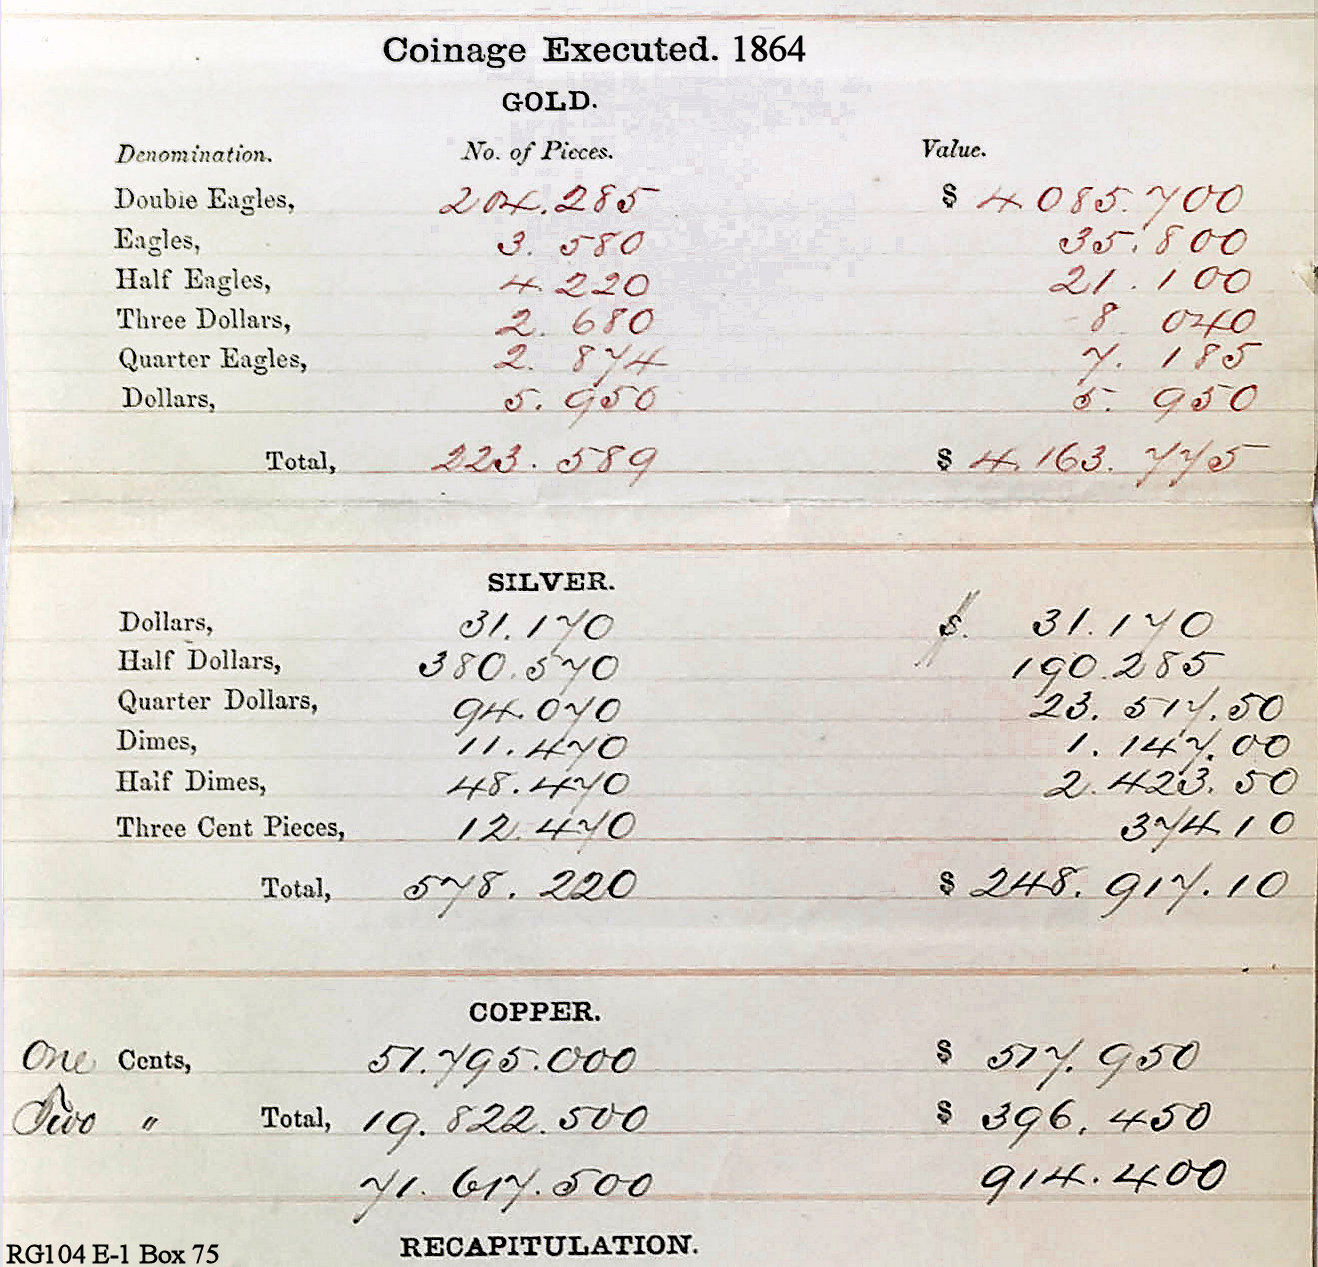 Coinage Executed. 1864
GOLD.
Denomination. No. of Pieces. Value.
Double Eagles, 204.285 $ 4 085.700
Eagles, 3. 580 35.800
Half Eagles, 4.220 21.100
Three Dollars, 2. 680 8 040
Quarter Eagles, 2. 874 7. 185
Dollars, 5. 950 5. 950
Total, 223. 589 $ 4.163. 775
SILVER.
Dollars, 31.170 $. 31.170
Half Dollars, 380.570 190.285
Quarter Dollars, 94.070 23. 517.50
Dimes, 11.470 1. 147.00
Half Dimes, 48.470 2.423.50
Three Cent Pieces, 12.470 374.10
Total, 578. 220 $ 248. 917.10
COPPER.
One Cents, 51.795.000 $ 517.950
Two " Total, 19. 822.500 $ 396. 450
71. 617.500 914.400
RECAPITULATION.
RG104 E-1 Box 75